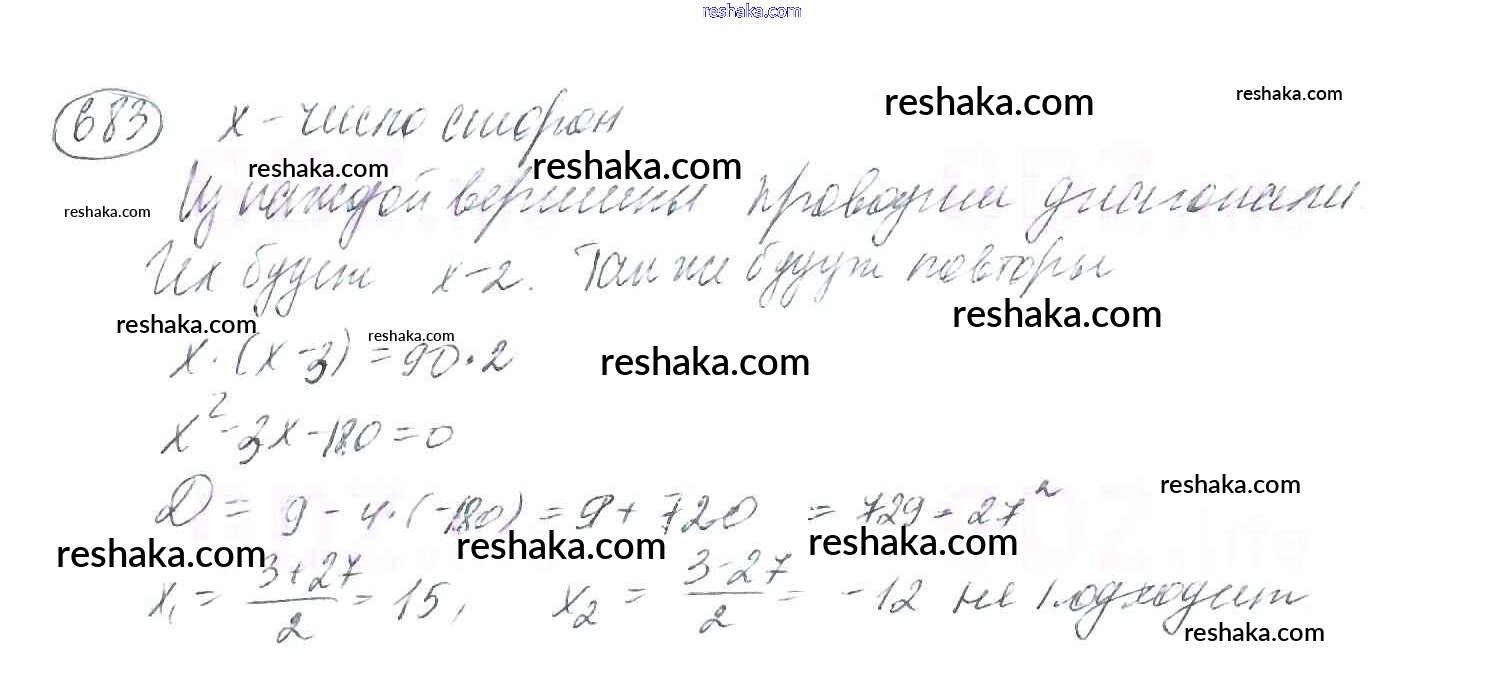 reshaka.com
683 x - число сторон
reshaka.com reshaka.com
reshaka.com reshaka.com
Из каждой вершины проводим диагонали
reshaka.com
Их будет x-2. Так же будут повторы
reshaka.com reshaka.com
x·(x-3) = 90·2
reshaka.com reshaka.com
x²-3x-180=0
D = 9 - 4·(-180) = 9 + 720 = 729 = 27²
reshaka.com
reshaka.com reshaka.com reshaka.com
x₁ = (3+27)/2 = 15, x₂ = (3-27)/2 = -12 не подходит
reshaka.com